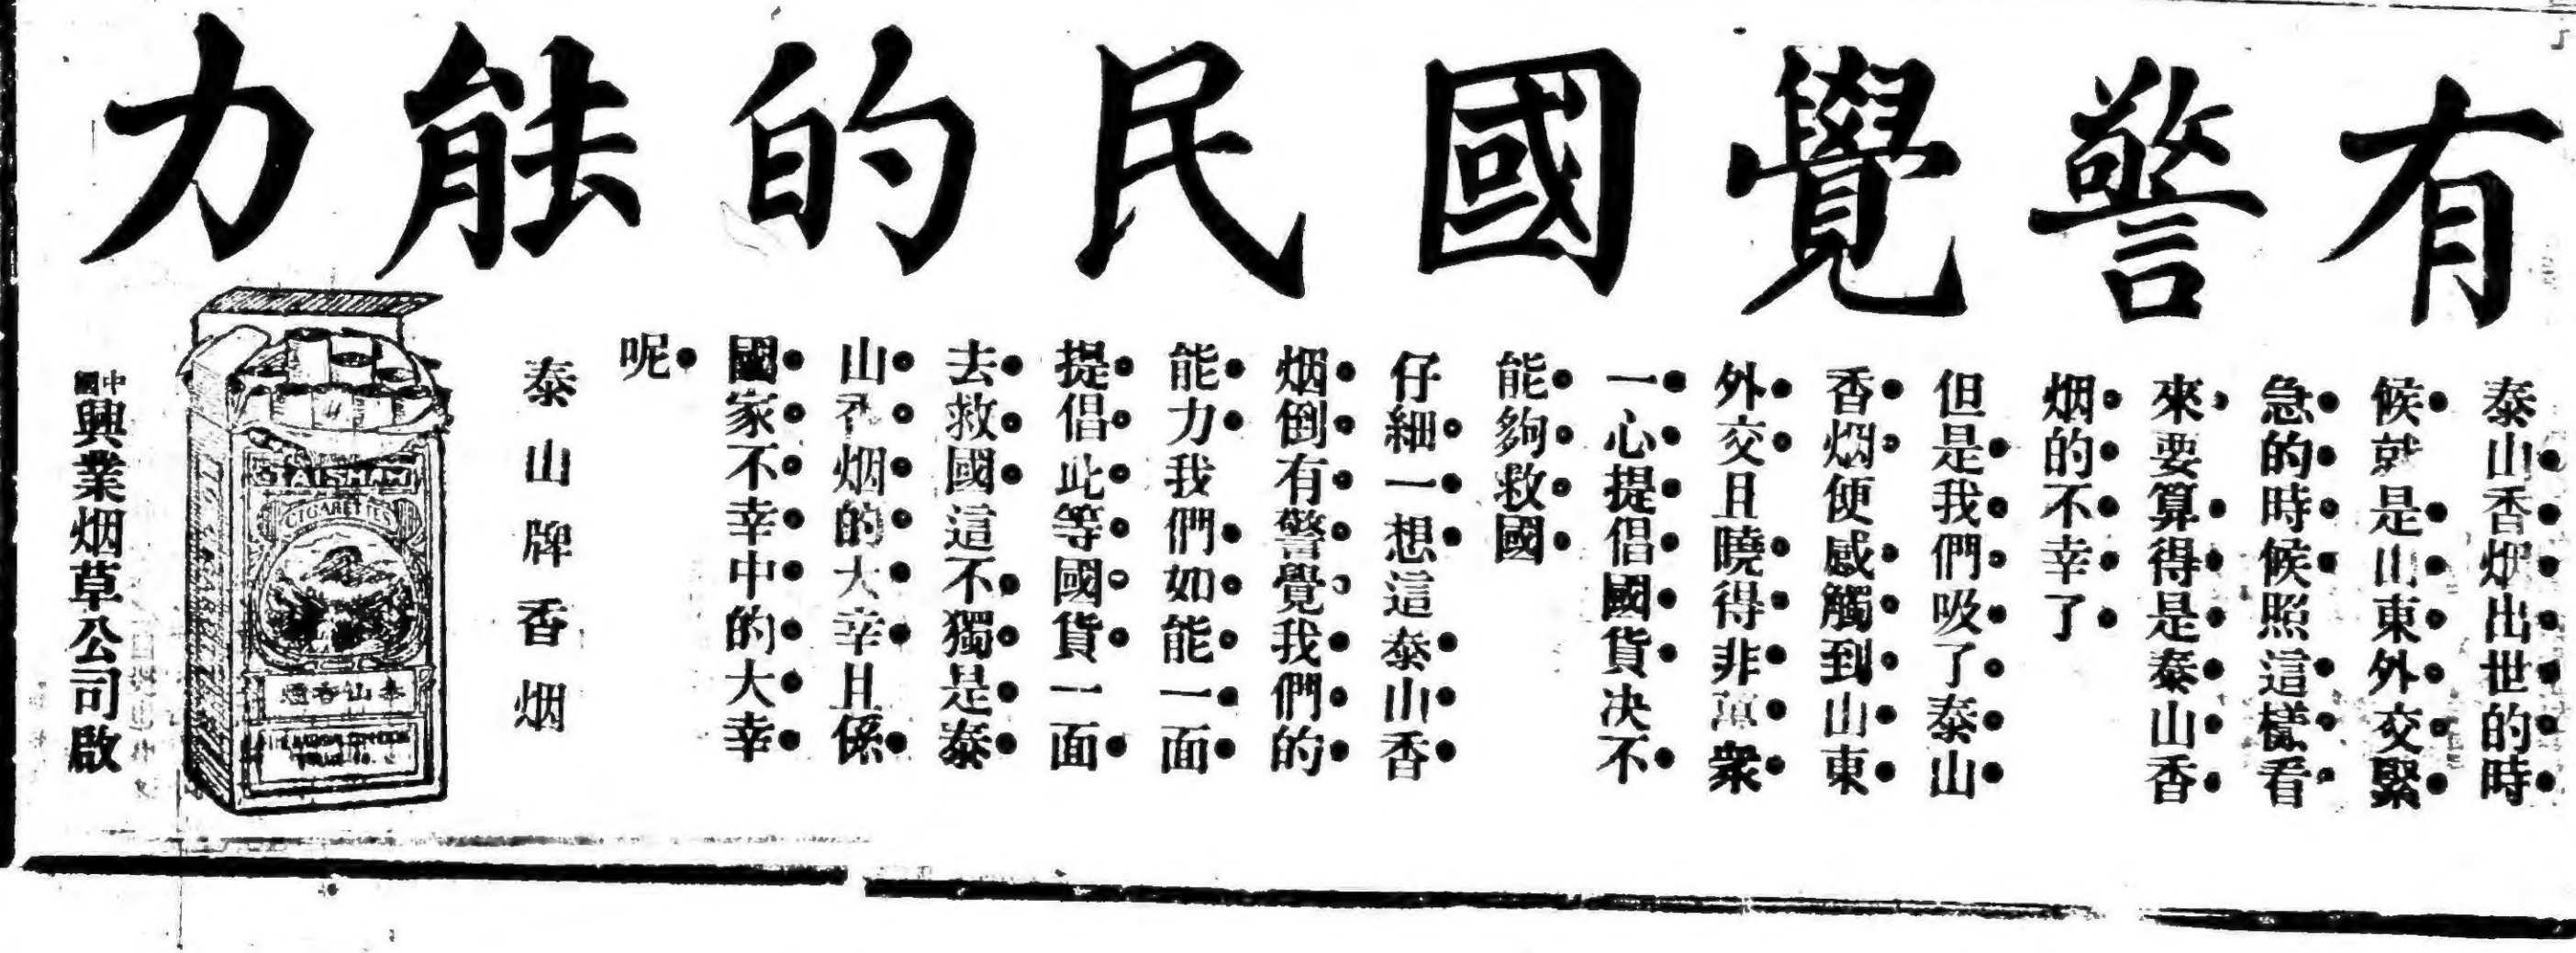 有警覺國民的能力
泰山香烟出世的時
候就是山東外交緊
急的時候照這樣看
來要算得是泰山香
烟的不幸了
但是我們吸了泰山
香烟便感觸到山東
外交且曉得非萬衆
一心提倡國貨决不
能夠救國
仔細一想這泰山香
烟倒有警覺我們的
能力我們如能一面
提倡此等國貨一面
去救國這不獨是泰
山香烟的大幸且係
國家不幸中的大幸
呢
泰山牌香烟
TAISHAN
CIGARETTES
泰山香烟
中國興業烟草公司啟